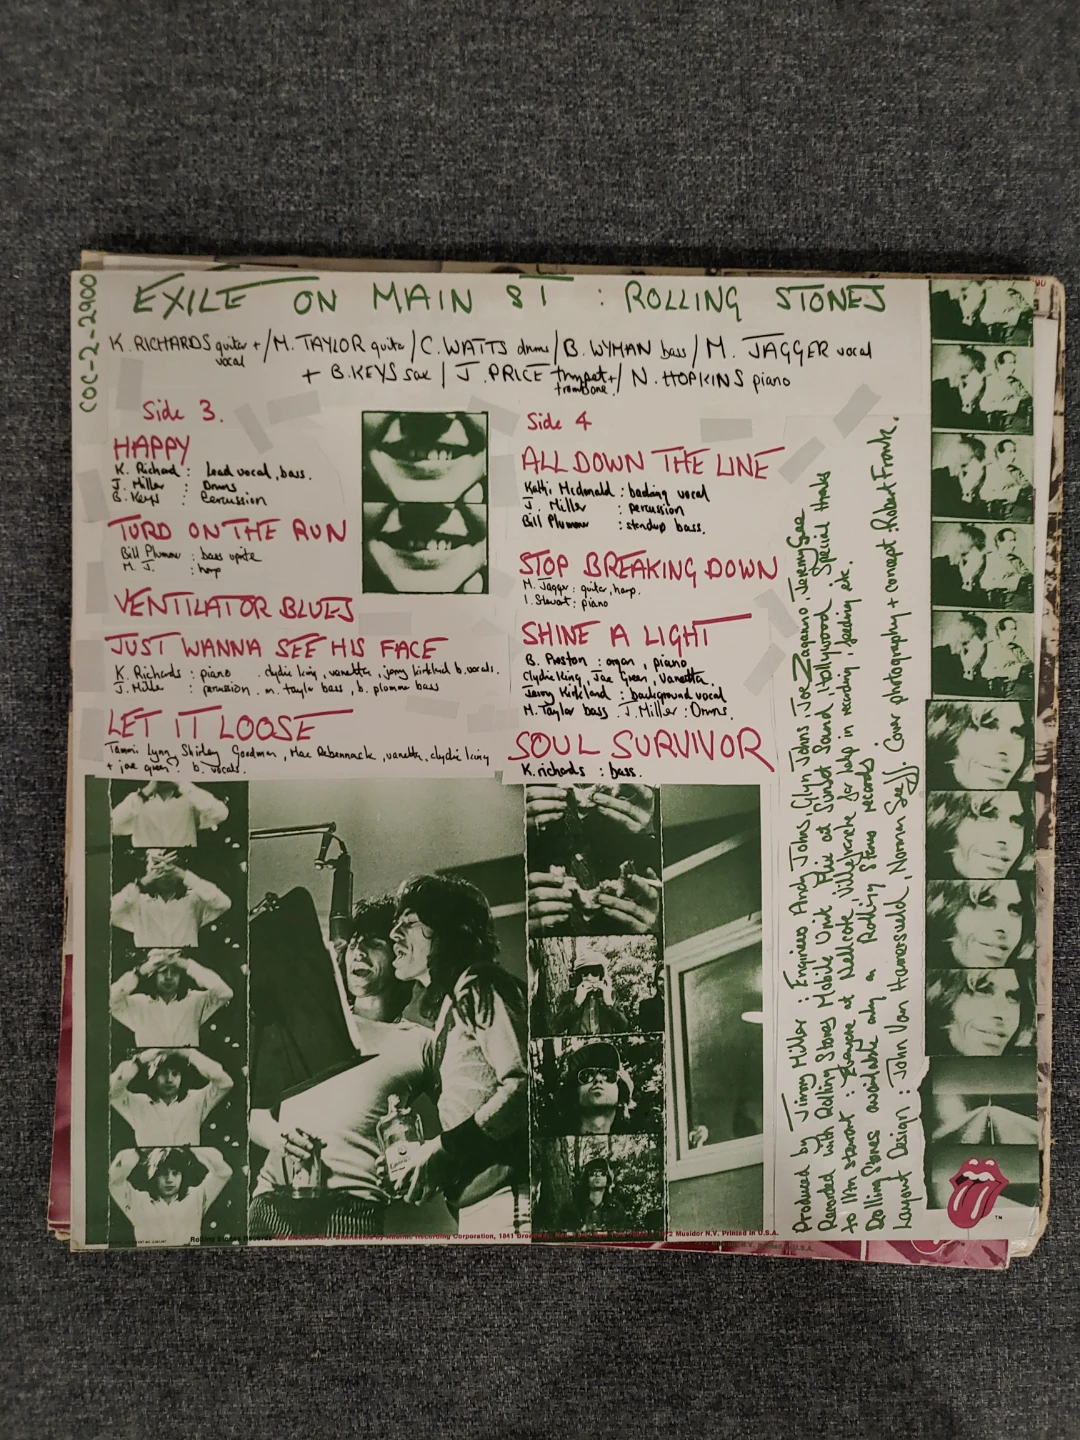 COC-2-2900
EXILE ON MAIN ST : ROLLING STONES
K. RICHARDS guitar + / M. TAYLOR guita / C. WATTS drums / B. WYMAN bass / M. JAGGER vocal
vocal
+ B. KEYS sax / J. PRICE trumpet + / N. HOPKINS piano
trombone.
Side 3.
HAPPY
K. Richard : Lead vocal, bass.
J. Miller : Drums
B. Keys : Percussion
TURD ON THE RUN
Bill Plummer : bass uprite
M. J. : harp
VENTILATOR BLUES
JUST WANNA SEE HIS FACE
K. Richards : piano . clydie king, vanetta, jerry kirkland b. vocals.
J. Miller : percussion . m. taylor bass, b. plummer bass
LET IT LOOSE
Tammi Lynn, Shirley Goodman, Mac Rebennack, vanetta, clydie king
+ joe green : b. vocals.
Side 4
ALL DOWN THE LINE
Kathi Mcdonald : backing vocal
J. Miller : percussion
Bill Plummer : standup bass.
STOP BREAKING DOWN
M. Jagger : guitar, harp.
I. Stewart : piano
SHINE A LIGHT
B. Preston : organ, piano
Clydie King, Joe Green, Vanetta.
Jerry Kirkland : background vocal
M. Taylor bass . J. Miller : Drums.
SOUL SURVIVOR
K. richards : bass.
Produced by Jimmy Miller : Engineers Andy Johns, Glyn Johns, Joe Zaganno, Jeremy Gee
Recorded with Rolling Stones Mobile Unit Plus at Sunset Sound, Hollywood. Special thanks
to Ian stewart : Everyone at Nellcote, Villefranche for help in recording, feeding etc.
Rolling Stones available only on Rolling Stones records
Layout Design : John Van Hamersveld, Norman Seeff. Cover photography + concept : Robert Frank.
Rolling Stones Records Recording Corporation, 1841 Broadway, Musidor N.V. Printed in U.S.A.
TM